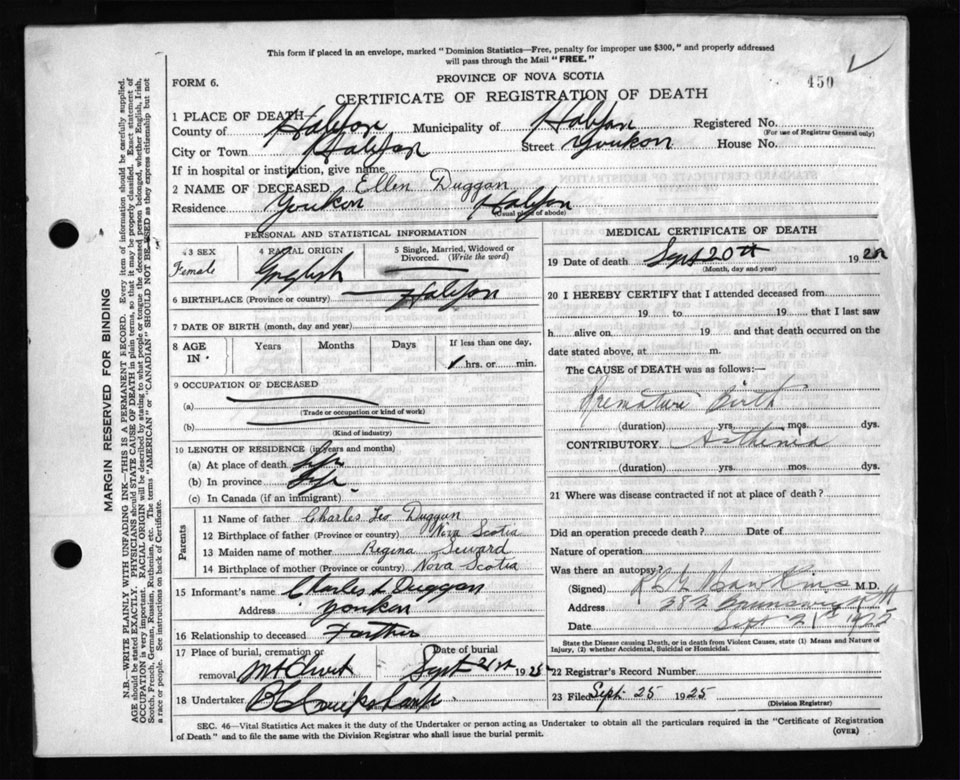 This form if placed in an envelope, marked "Dominion Statistics—Free, penalty for improper use $300," and properly addressed
will pass through the Mail "FREE."
FORM 6.
PROVINCE OF NOVA SCOTIA
450
CERTIFICATE OF REGISTRATION OF DEATH
1 PLACE OF DEATH
County of Halifax Municipality of Halifax Registered No.
(For use of Registrar General only)
City or Town Halifax Street Youkon House No.
If in hospital or institution, give name
2 NAME OF DECEASED Ellen Duggan
Residence Youkon Halifax
(Usual place of abode)
PERSONAL AND STATISTICAL INFORMATION
3 SEX 4 RACIAL ORIGIN 5 Single, Married, Widowed or
Divorced. (Write the word)
Female English
6 BIRTHPLACE (Province or country) Halifax
7 DATE OF BIRTH (month, day and year)
8 AGE IN Years Months Days If less than one day,
hrs. or min.
9 OCCUPATION OF DECEASED
(a)
(Trade or occupation or kind of work)
(b)
(Kind of industry)
10 LENGTH OF RESIDENCE (in years and months)
(a) At place of death
(b) In province
(c) In Canada (if an immigrant)
Parents
11 Name of father Charles Leo Duggan
12 Birthplace of father (Province or country) Nova Scotia
13 Maiden name of mother Regina Seward
14 Birthplace of mother (Province or country) Nova Scotia
15 Informant's name Charles L Duggan
Address Youkon
16 Relationship to deceased Farther
17 Place of burial, cremation or Date of burial
removal Mt Olivet Sept 21st 1925
18 Undertaker
MEDICAL CERTIFICATE OF DEATH
19 Date of death Sept 20th 19
(Month, day and year)
20 I HEREBY CERTIFY that I attended deceased from
19 to 19 that I last saw
h alive on 19 and that death occurred on the
date stated above, at m.
The CAUSE of DEATH was as follows:—
Premature Birth
(duration) yrs. mos. dys.
CONTRIBUTORY Asthenia
(duration) yrs. mos. dys.
21 Where was disease contracted if not at place of death?
Did an operation precede death? Date of
Nature of operation
Was there an autopsy?
(Signed) M.D.
Address 282 Brunswick St
Date Sept 21st
State the Disease causing Death, or in death from Violent Causes, state (1) Means and Nature of
Injury, (2) whether Accidental, Suicidal or Homicidal.
22 Registrar's Record Number
23 Filed Sept 25 1925
(Division Registrar)
SEC. 46—Vital Statistics Act makes it the duty of the Undertaker or person acting as Undertaker to obtain all the particulars required in the "Certificate of Registration
of Death" and to file the same with the Division Registrar who shall issue the burial permit.
(OVER)
MARGIN RESERVED FOR BINDING
N.B.—WRITE PLAINLY WITH UNFADING INK—THIS IS A PERMANENT RECORD. Every item of information should be carefully supplied.
AGE should be stated EXACTLY. PHYSICIANS should STATE CAUSE OF DEATH in plain terms, so that it may be properly classified. Exact statement of
OCCUPATION is very important. RACIAL ORIGIN will be described by stating to what people or tongue the deceased person belonged, whether English, Irish,
Scotch, French, German, Russian, Ruthenian, etc. The terms "AMERICAN" or "CANADIAN" SHOULD NOT BE USED as they express citizenship but not
a race or people. See instructions on back of Certificate.